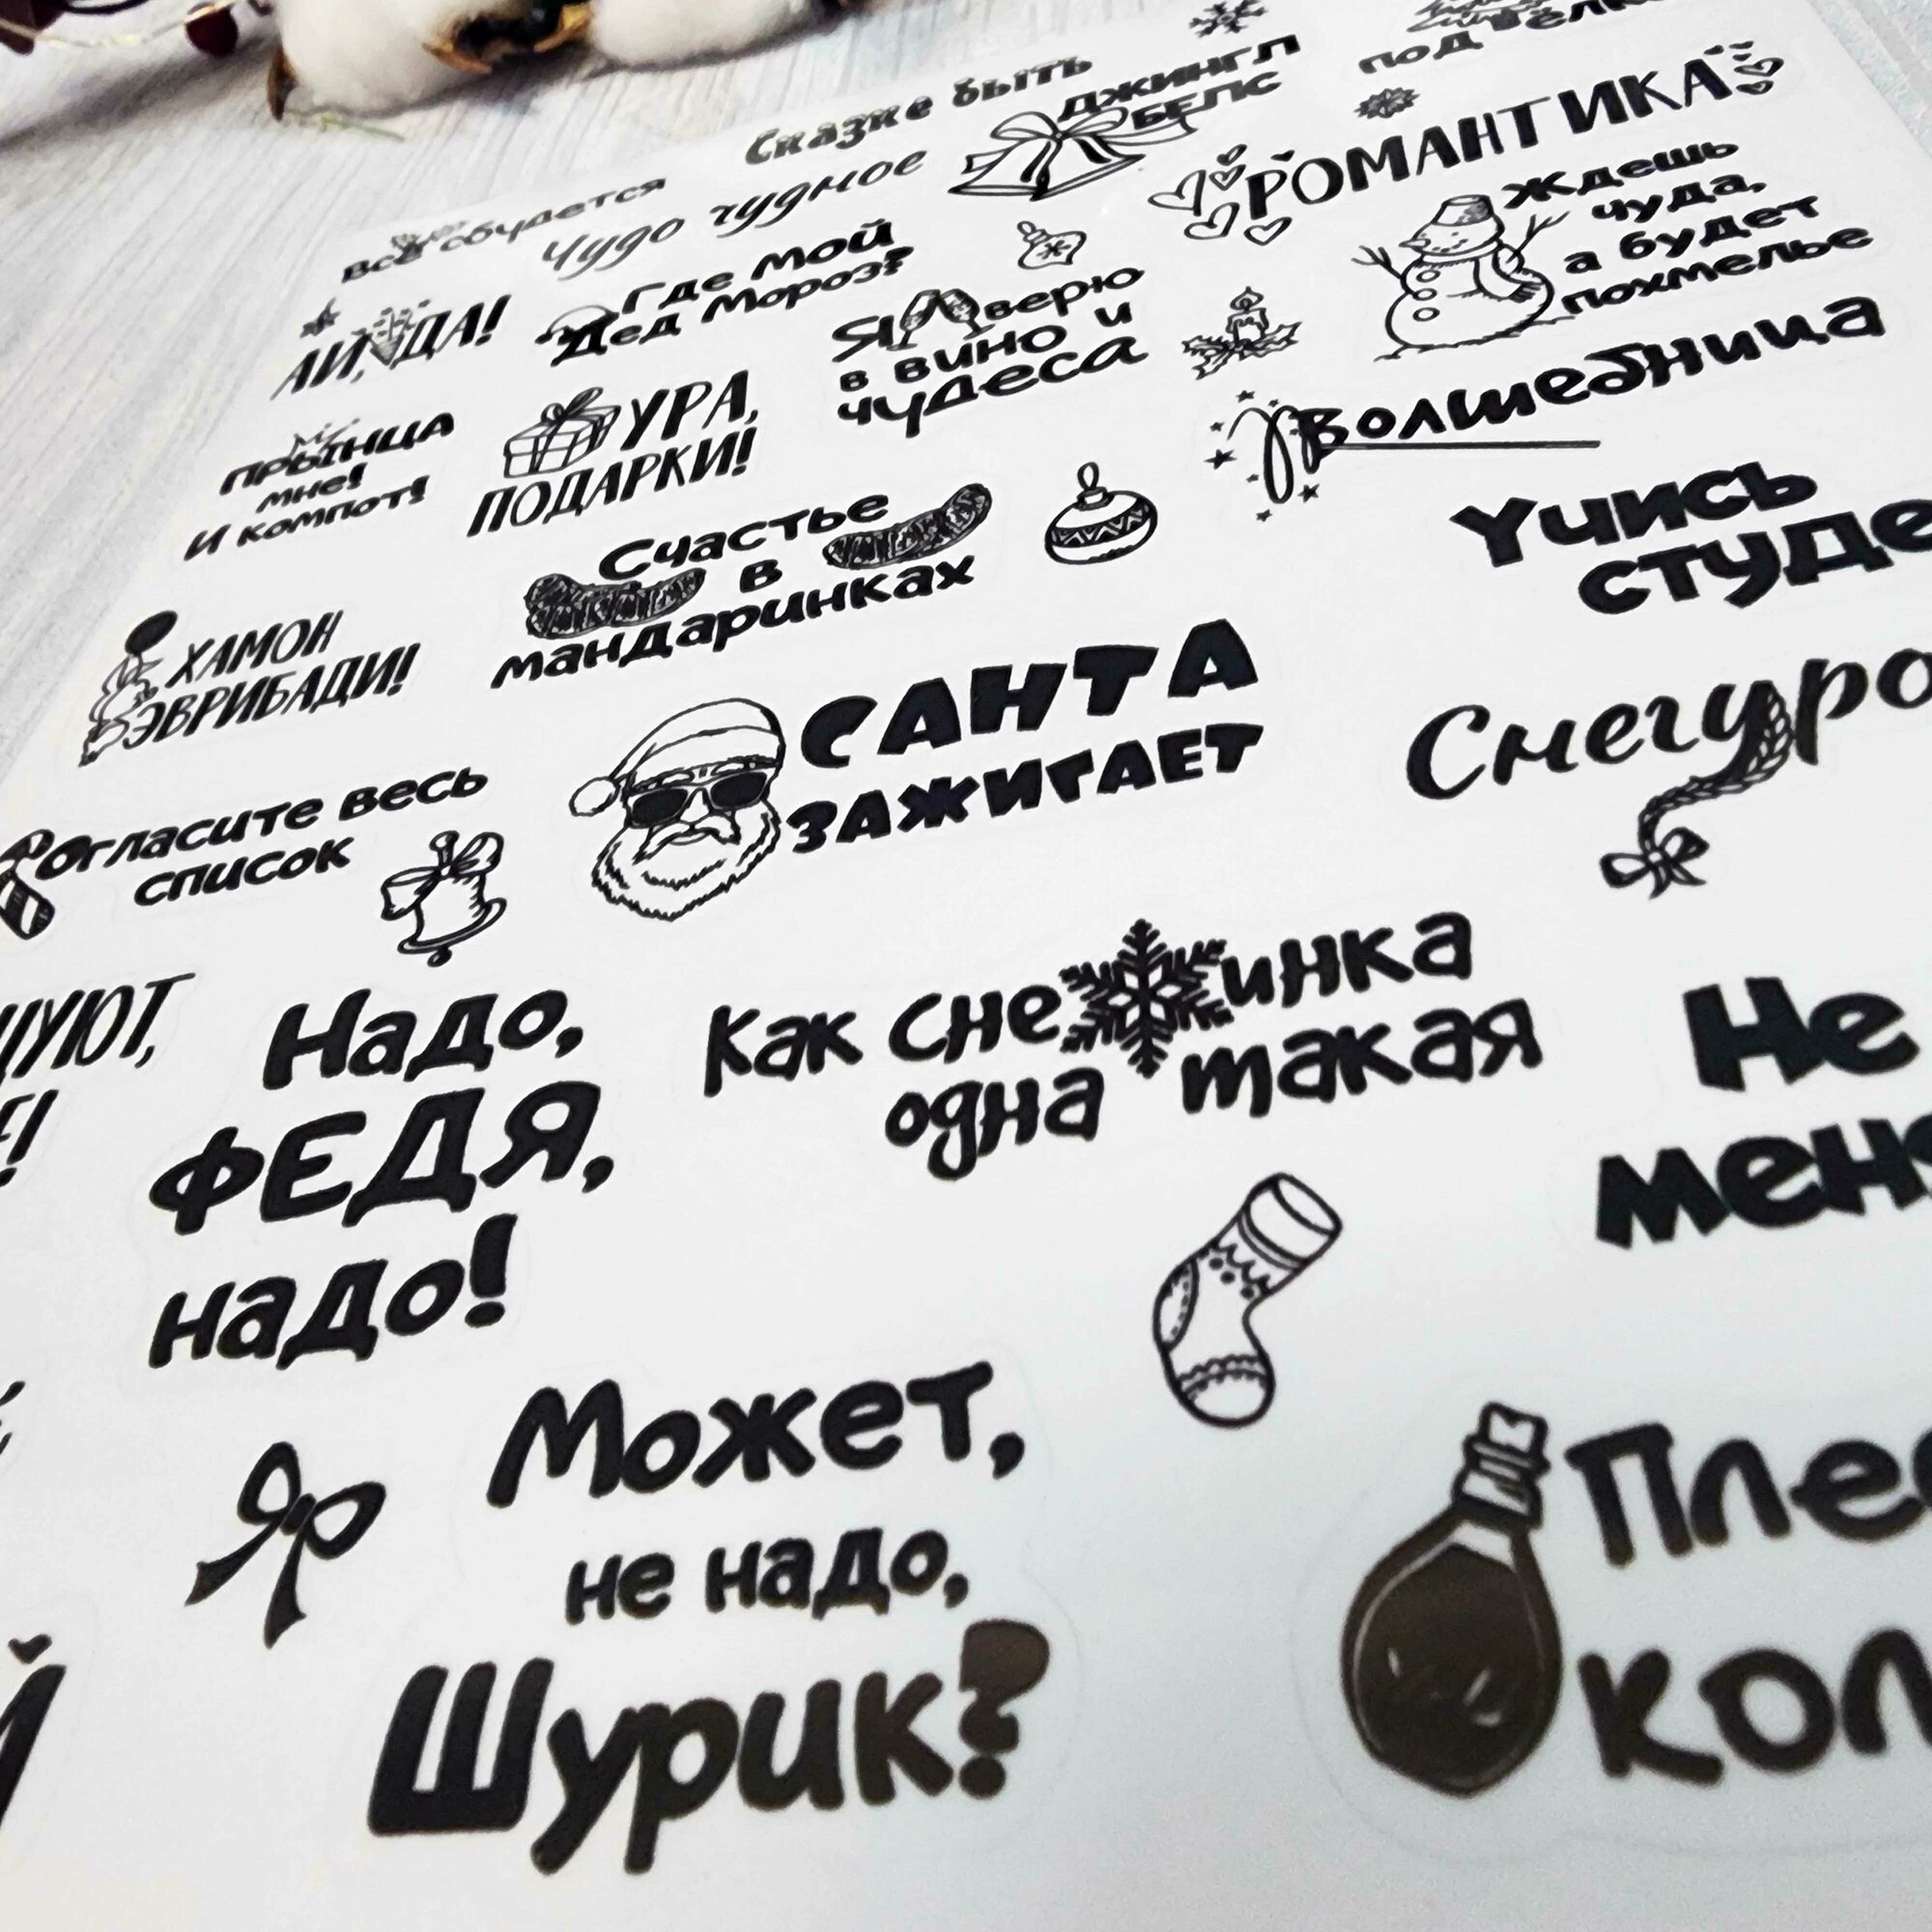 Сказке быть
ДЖИНГЛ
БЕЛС
под
Всё сбудется
Чудо чудное
РОМАНТИКА
Где мой
Дед Мороз?
Ждешь
чуда,
а будет
похмелье
АЙ, ДА!
Я верю
в вино и
чудеса
Волшебница
ПРЫНЦА
мне!
И компот!
УРА,
ПОДАРКИ!
Счастье
в
мандаринках
Учись
студе
ХАМОН
ЭВРИБАДИ!
САНТА
ЗАЖИГАЕТ
Снегуро
огласите весь
список
ЦУЮТ,
Е!
Надо,
ФЕДЯ,
надо!
Как сне инка
одна такая
Не
мен
Может,
не надо,
Шурик?
Плес
кол
Й